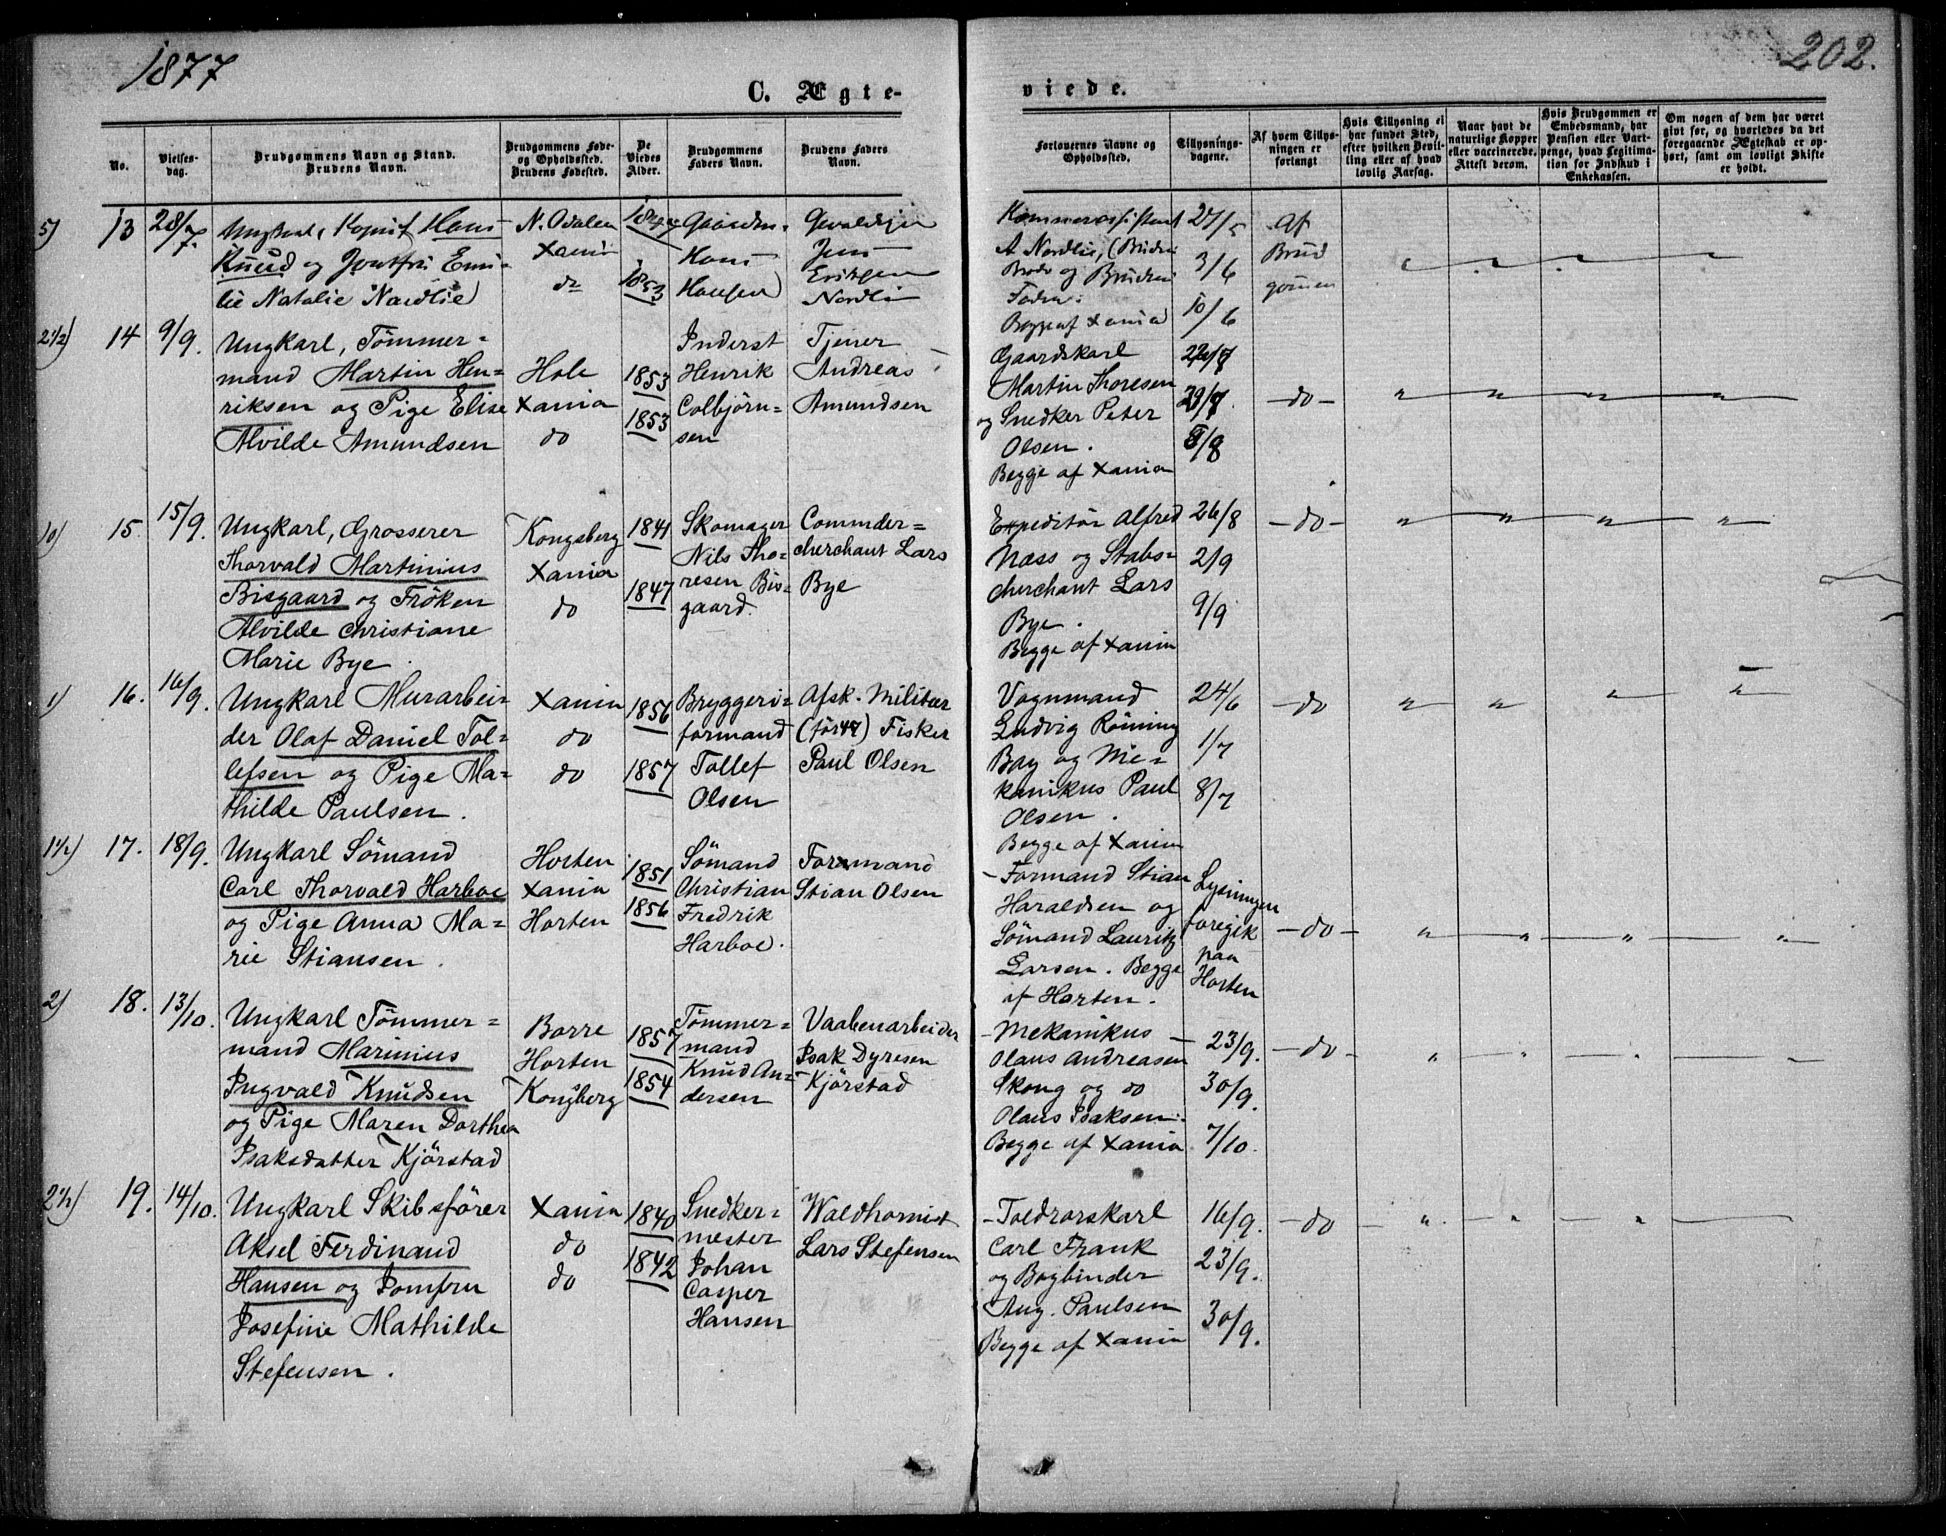 1877
202.
C. Ægte-
viede.
No.
Vielses-
dag.
Brudgommens Navn og Stand.
Brudens Navn.
Brudgommens Føde-
og Opholdssted.
Brudens Fødested.
De
Viedes
Alder.
Brudgommens
Faders Navn.
Brudens Faders
Navn.
Forlovernes Navne og
Opholdssted.
Tillysnings-
dagene.
Af hvem Tillys-
ningen er
forlangt
Hvis Tillysning ei
har fundet Sted,
efter hvilken Bevil-
ling eller af hvad
lovlig Aarsag.
Naar havt de
naturlige Kopper
eller vaccinerede.
Attest derom.
Hvis Brudgommen er
Embedsmand, har
Pension eller Vart-
penge, hvad Legitima-
tion for Indskud i
Enkekassen.
Om nogen af dem har været
gift før, og hvorledes da det
foregaaende Ægteskab er op-
hørt, samt om lovligt Skifte
er holdt.
5) 13 28/7.
Hans
Knud og Jomfru Emi-
lie Natalie Nordlie
N. Odalen
Xania
do
1853
Hans
Hansen
Jens
Nordli
A Nordlie, (Brudens
Broder og Brudens
Fader.
Begge af Xania
27/5
3/6
10/6
Af
Brud
gommen
2 1/2) 14 9/9.
Ungkarl, Tømmer=
mand Martin Hen=
riksen og Pige Elise
Alvilde Amundsen
Hole
Xania
do
1853
1853
Inderst
Henrik
Colbjørn=
sen
Tjener
Andreas
Amundsen
Gaardskarl
Martin Thoresen
og Snedker Peter
Olsen.
Begge af Xania
29/7.
5/8
-do-
10) 15. 15/9.
Ungkarl, Grosserer
Thorvald Martinius
Bisgaard og Frøken
Alvilde Christiane
Marie Bye.
Kongsberg
Xania
do
1841
1847
Skomager
Nils Tho=
resen Bis=
gaard.
Commder=
cherchant Lars
Bye
Expeditør Alfred
Næss og Stabs=
cherchant Lars
Bye.
Begge af Xania
26/8
2/9
9/9
-do-
1) 16. 16/9.
Ungkarl Murarbei=
der Olaf Daniel Tol=
lefsen og Pige Ma=
thilde Paulsen.
Xania
do
do
1856
1857
Bryggeri=
formand
Tollef
Olsen
Afsk. Militær
Fisker
Paul Olsen
Vognmand
Ludvig Røining
Bay og Me=
kanikus Paul
Olsen.
Begge af Xania
24/6
1/7
8/7
-do
1 1/2) 17. 18/9.
Ungkarl Sømand
Carl Thorvald Harboe
og Pige Anna Ma=
rie Stiansen.
Horten
Xania
Horten
1851
1856
Sømand
Christian
Fredrik
Harboe.
Formand
Stian Olsen
-Formand Stian
Haraldsen og
Sømand Lauritz
Larsen. Begge
af Horten.
Lysningen
foregik
paa
Horten
-do-
2) 18. 13/10.
Ungkarl Tømmer=
mand Marinius
Ingvald Knudsen
og Pige Maren Dorthea
Isaksdatter Kjørstad
Borre
Horten
Kongsberg
1857
1854
Tømmer=
mand
Knud An=
dersen
Vaabenarbeider
Isak Dyresen
Kjørstad
-Mekanikus
Olaus Andreasen
Skong og do
Olaus Isaksen.
Begge af Xania
23/9.
30/9.
7/10.
-do-
2 1/2) 19. 14/10.
Ungkarl Skibsfører
Aksel Ferdinand
Hansen og Jomfru
Josefine Mathilde
Stefensen.
Xania
do
do
1840
1842
Snedker=
mester
Johan
Casper
Hansen
Waldhornist
Lars Stefensen
-Toldrorskarl
Carl Frank
og Bogbinder
Aug. Paulsen
Begge af Xania
16/9.
23/9.
30/9.
-do